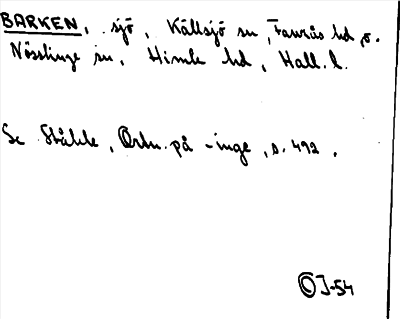 BARKEN, sjö, Källsjö sn, Faurås hd o.
Nösslinge sn, Himle hd, Hall. l.
Se Ståhle, Ortn. på -inge, s. 492.
OJ-54